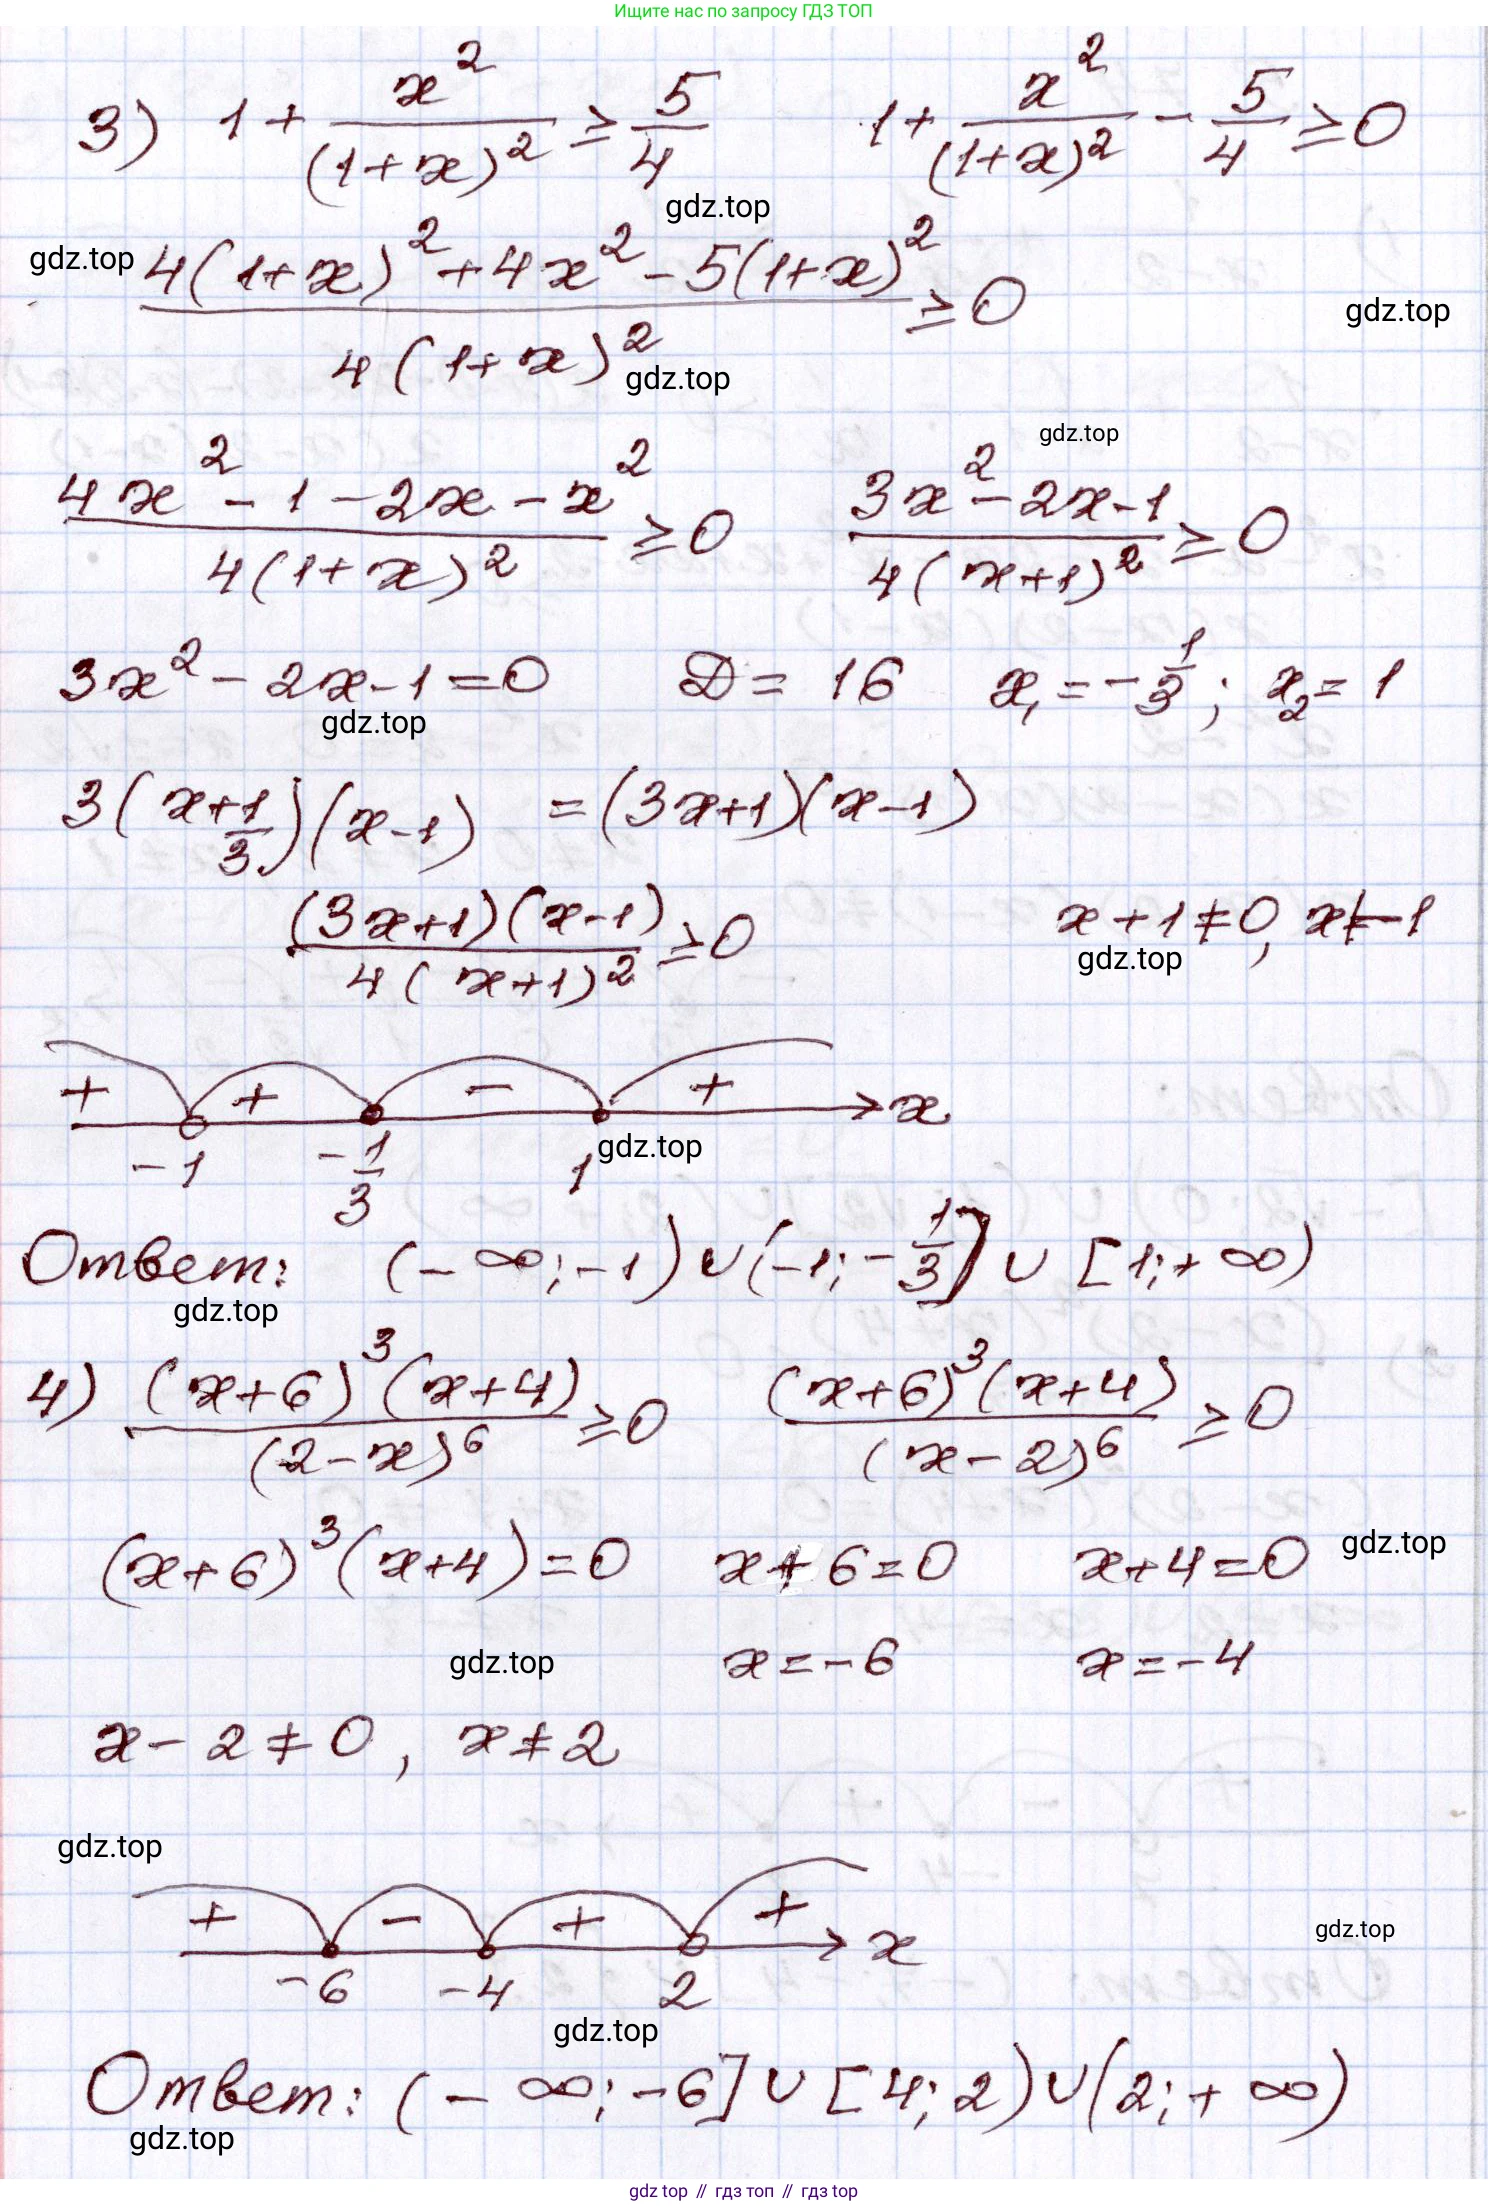 Ищите нас по запросу ГДЗ ТОП
3) 1 + x²/(1+x)² ≥ 5/4   1 + x²/(1+x)² - 5/4 ≥ 0
gdz.top
gdz.top
(4(1+x)² + 4x² - 5(1+x)²)/(4(1+x)²) ≥ 0
gdz.top
gdz.top
gdz.top
(4x² - 1 - 2x - x²)/(4(1+x)²) ≥ 0   (3x² - 2x - 1)/(4(x+1)²) ≥ 0
3x² - 2x - 1 = 0   D = 16   x₁ = -1/3 ; x₂ = 1
gdz.top
3(x + 1/3)(x-1) = (3x+1)(x-1)
((3x+1)(x-1))/(4(x+1)²) ≥ 0   x + 1 ≠ 0, x ≠ -1
gdz.top
+ + - + x
-1   -1/3   1
gdz.top
Ответ: (-∞; -1) ∪ (-1; -1/3] ∪ [1; +∞)
gdz.top
4) ((x+6)³(x+4))/((2-x)⁶) ≥ 0   ((x+6)³(x+4))/((x-2)⁶) ≥ 0
(x+6)³(x+4) = 0   x + 6 = 0   x + 4 = 0
gdz.top
gdz.top
x = -6   x = -4
x - 2 ≠ 0, x ≠ 2
gdz.top
+ - + + x
gdz.top
-6   -4   2
gdz.top
Ответ: (-∞; -6] ∪ [4; 2) ∪ (2; +∞)
gdz.top
gdz top // гдз топ // гдз top